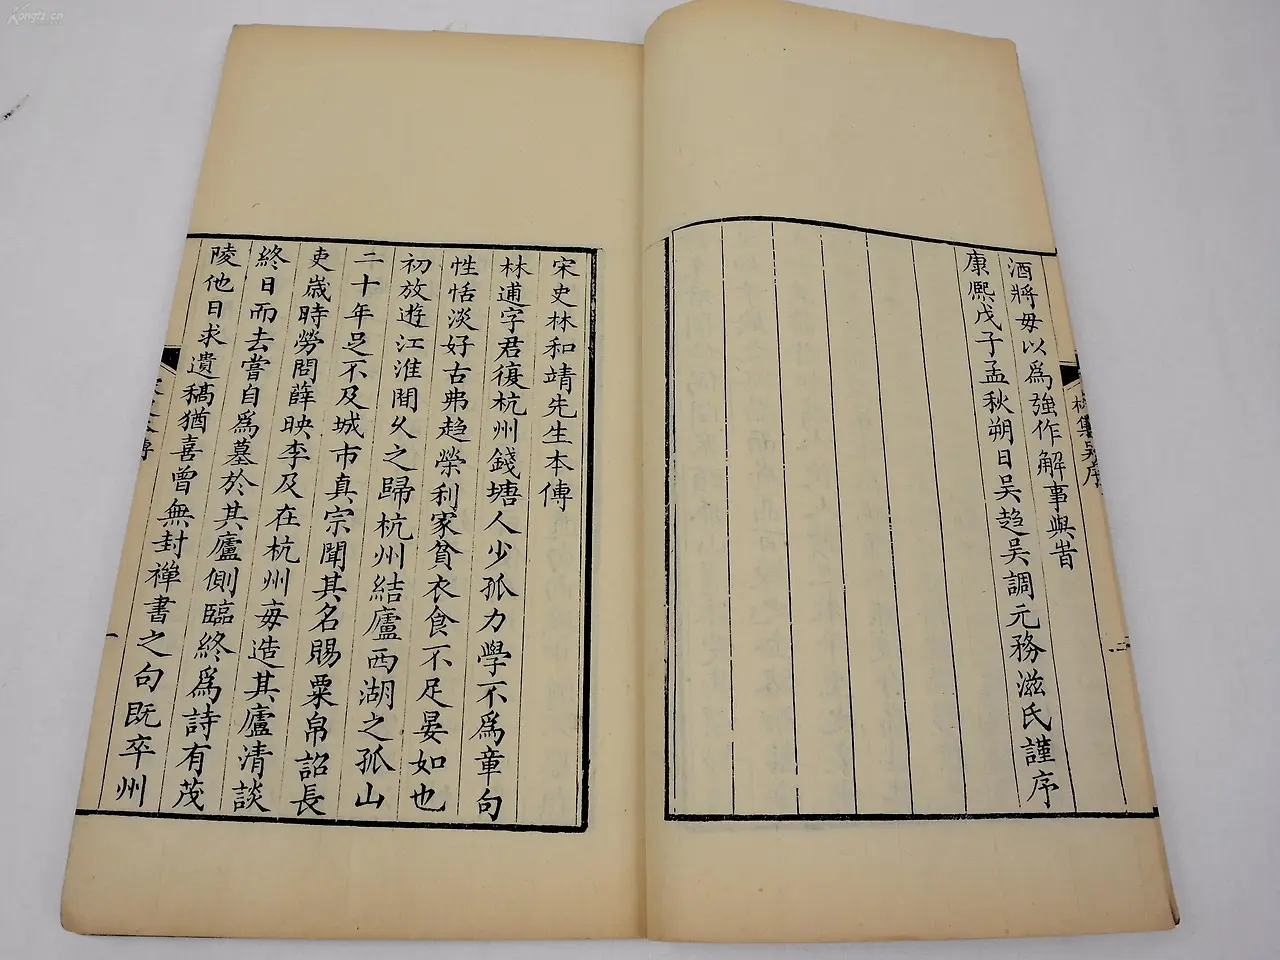 Kongfz.cn
酒將毋以爲強作解事與昔
康熙戊子孟秋朔日吳趋吳調元務滋氏謹序
集吳序
二
宋史林和靖先生本傳
林逋字君復杭州錢塘人少孤力學不爲章句
性恬淡好古弗趋榮利家貧衣食不足晏如也
初放遊江淮閒久之歸杭州結廬西湖之孤山
二十年足不及城市真宗聞其名賜粟帛詔長
吏歲時勞問薛映李及在杭州每造其廬清談
終日而去嘗自爲墓於其廬側臨終爲詩有茂
陵他日求遺稿猶喜曾無封禪書之句既卒州
本傳
一